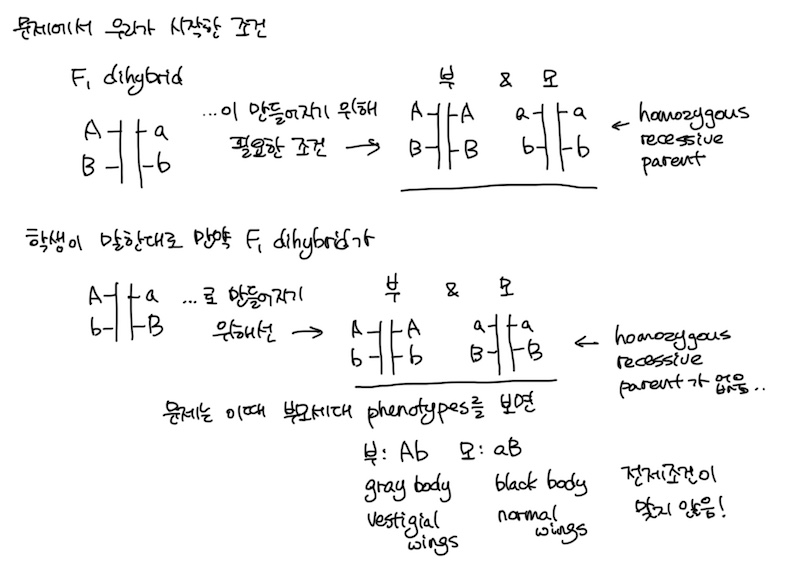 문제에서 우리가 시작한 조건
F₁ dihybrid
부 & 모
A a
B b
...이 만들어지기 위해
필요한 조건 →
A A
B B
a a
b b
← homozygous
recessive
parent
학생이 말한대로 만약 F₁ dihybrid가
A a
b B
...로 만들어지기
위해선 →
부 & 모
A A
b b
a a
B B
← homozygous
recessive
parent가 없음..
문제는 이때 부모세대 phenotypes를 보면
부: Ab 모: aB
gray body black body 전제조건이
vestigial normal 맞지 않음!
wings wings